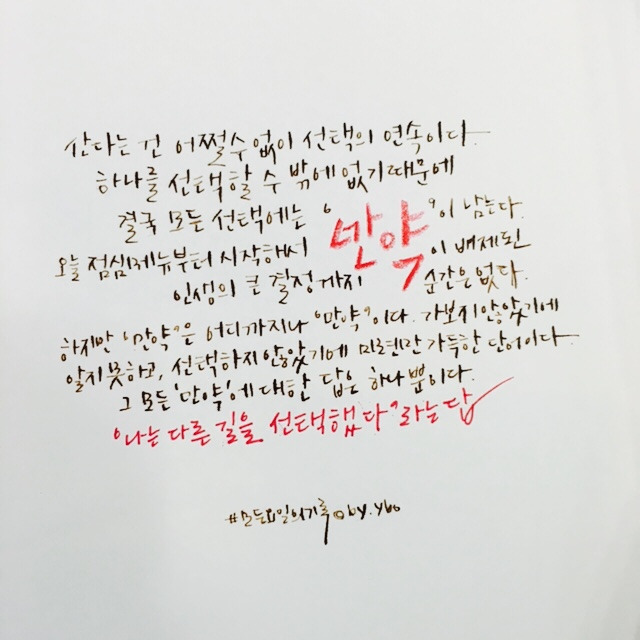 산다는 건 어쩔수 없이 선택의 연속이다.
하나를 선택할 수 밖에 없기때문에
결국 모든 선택에는 '만약'이 남는다.
오늘 점심메뉴부터 시작해서 이 배제된
인생의 큰 결정까지 순간은 없다.
하지만 '만약'은 어디까지나 '만약'이다. 가보지않았기에
알지못하고, 선택하지않았기에 미련만 가득한 단어이다.
그 모든 '만약'에 대한 답은 하나뿐이다.
'나는 다른 길을 선택했다'라는 답
#모든요일의기록 by.ybo